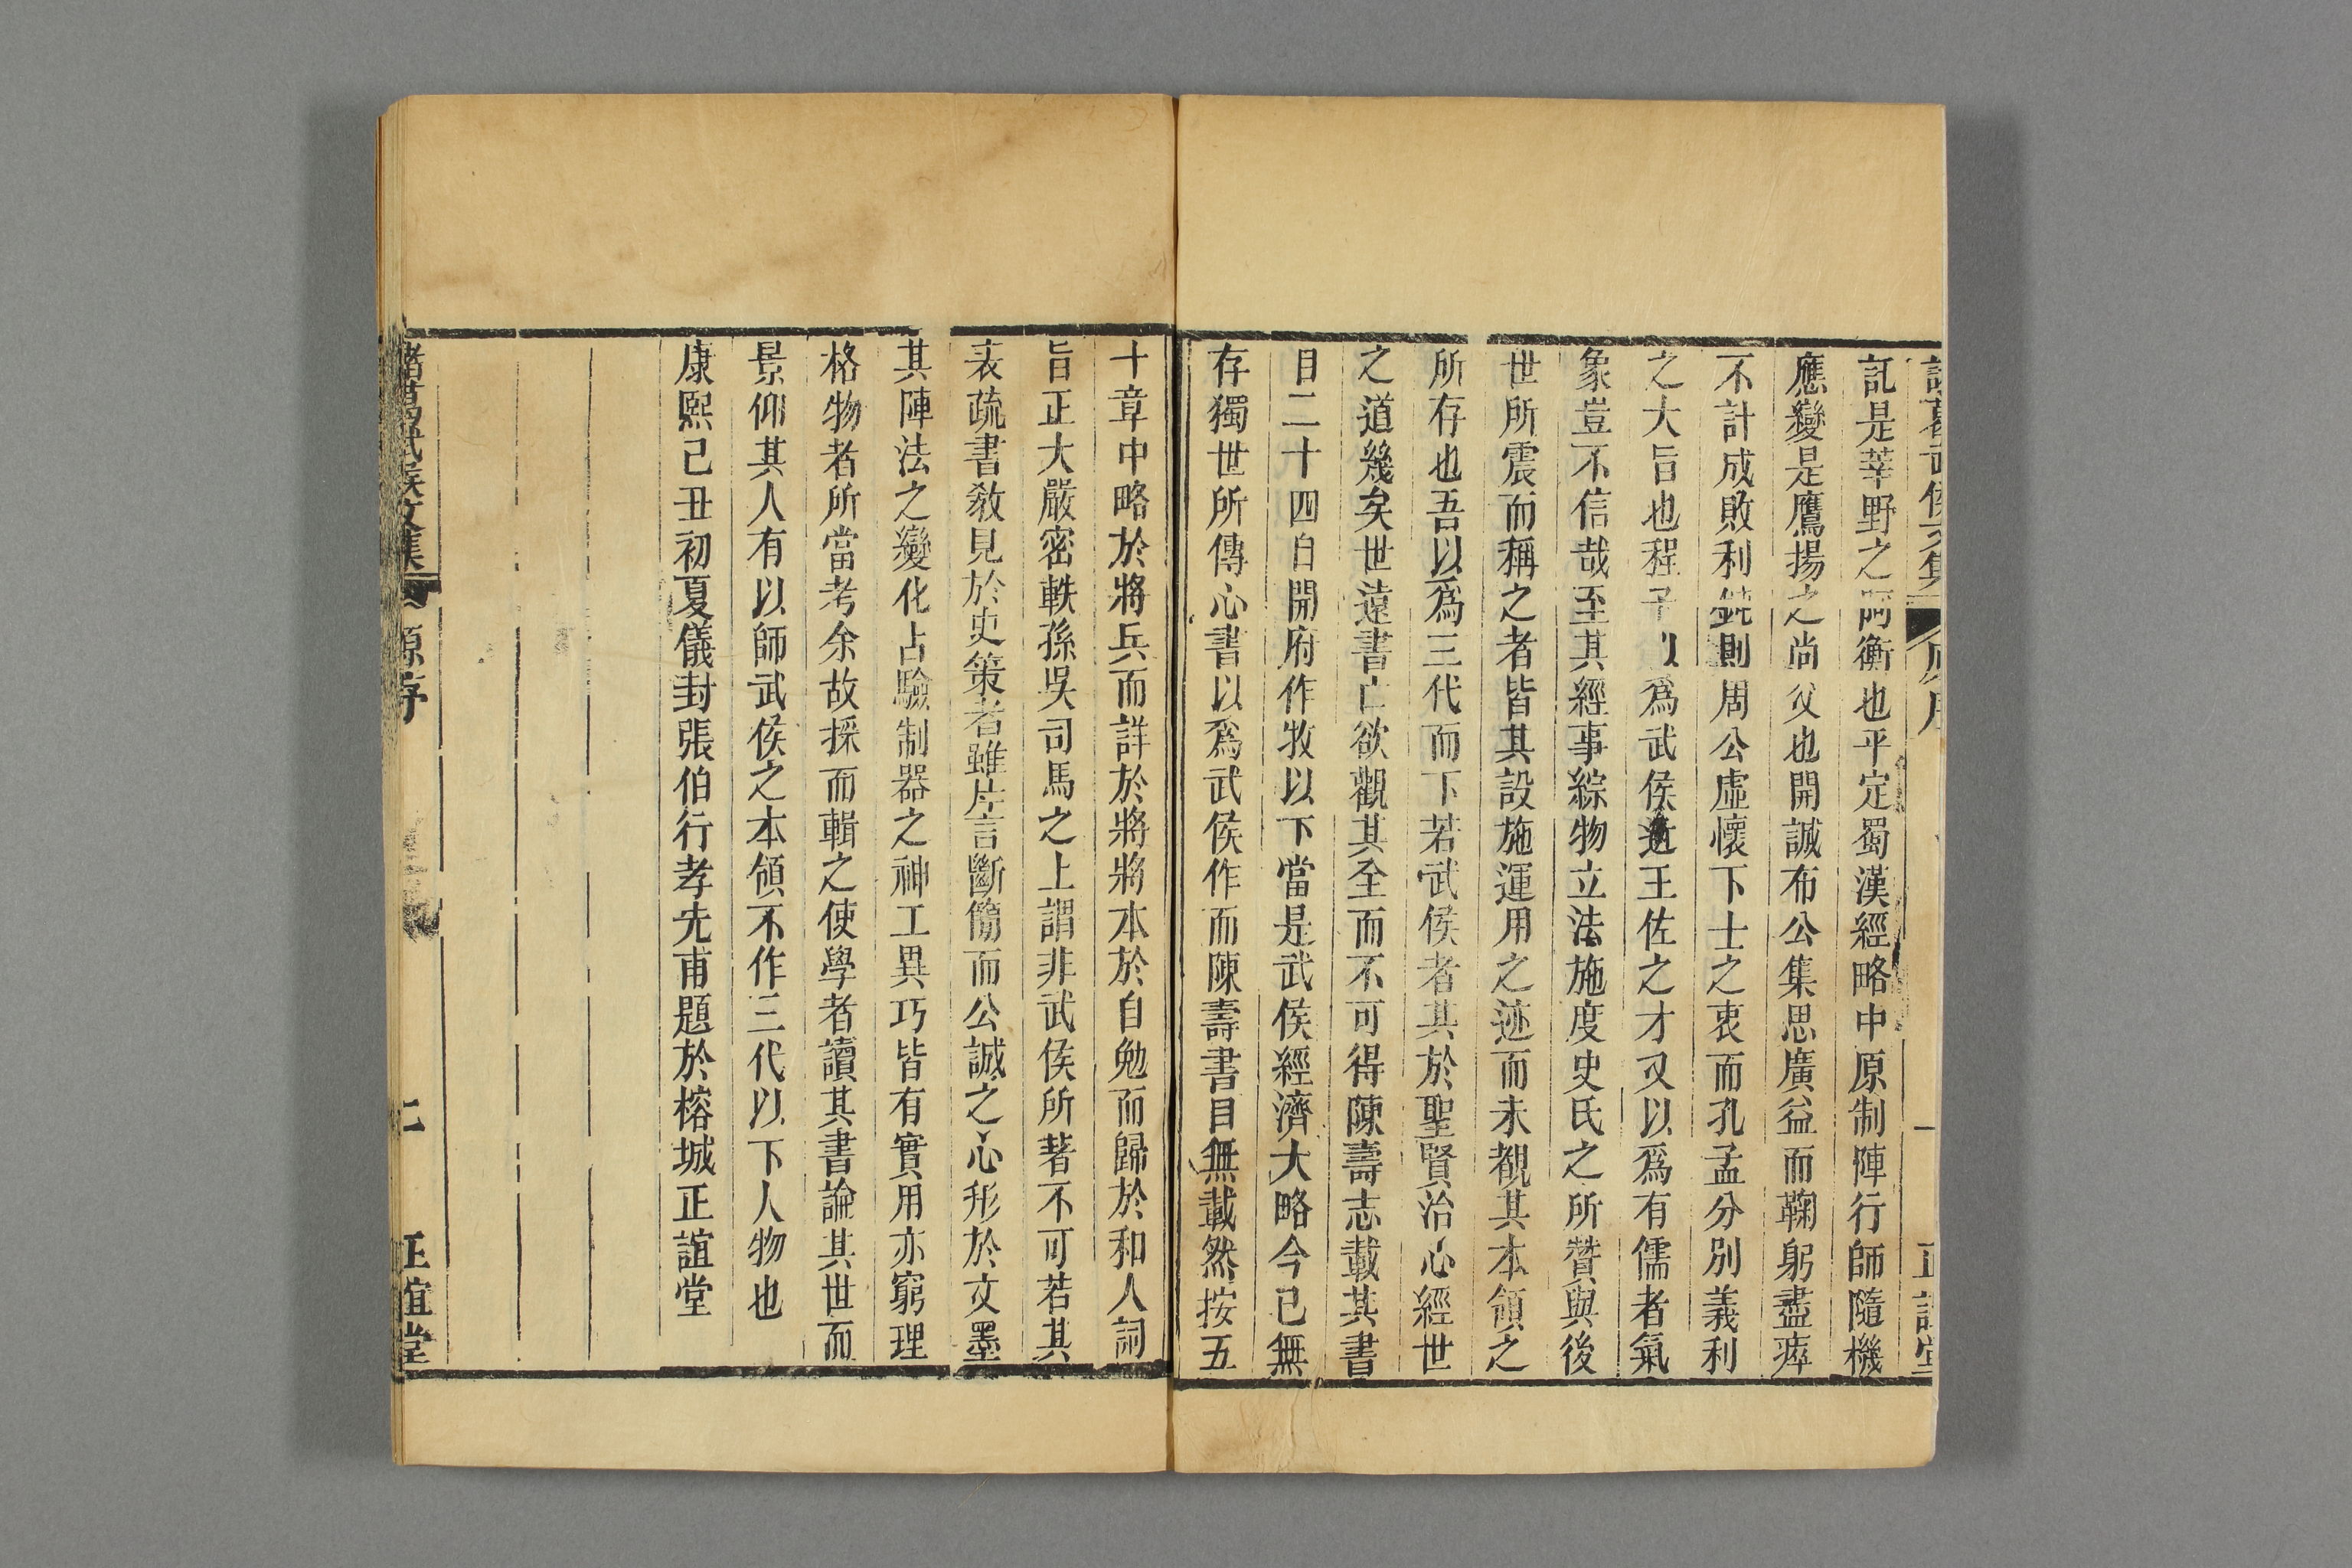 訖是莘野之阿衡也平定蜀漢經略中原制陣行師隨機
應變是鷹揚之尚父也開誠布公集思廣益而鞠躬盡瘁
不計成敗利鈍則周公虛懷下士之衷而孔孟分別義利
之大旨也程子以爲武侯道王佐之才又以爲有儒者氣
象豈不信哉至其經事綜物立法施度史氏之所贊與後
世所震而稱之者皆其設施運用之迹而未覩其本領之
所存也吾以爲三代而下若武侯者其於聖賢治心經世
之道幾矣世遠書亡欲觀其全而不可得陳壽志載其書
目二十四自開府作牧以下當是武侯經濟大略今已無
存獨世所傳心書以爲武侯作而陳壽書目無載然按五
十章中略於將兵而詳於將將本於自勉而歸於和人詞
旨正大嚴密軼孫吳司馬之上謂非武侯所著不可若其
表疏書教見於史策者雖片言斷簡而公誠之心形於文墨
其陣法之變化占驗制器之神工異巧皆有實用亦窮理
格物者所當考余故採而輯之使學者讀其書論其世而
景仰其人有以師武侯之本領不作三代以下人物也
康熙己丑初夏儀封張伯行孝先甫題於榕城正誼堂
諸葛武侯文集 原序 二 正誼堂